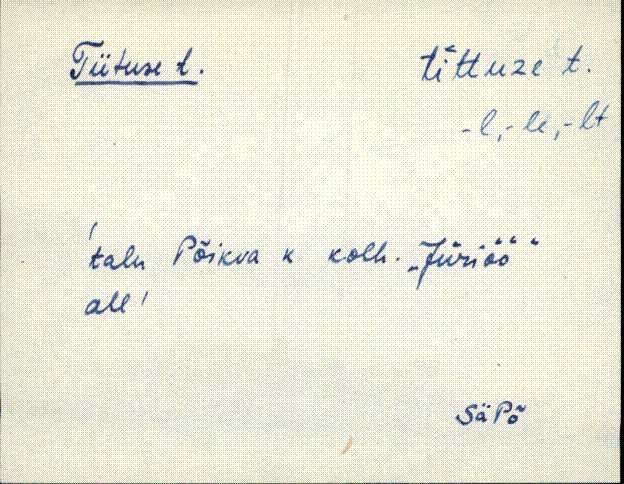 Tiituse t. tìttuze t.
-l, -le, -lt
'talu Põikva k kolh. „Jüriöö"
all'
SäPõ